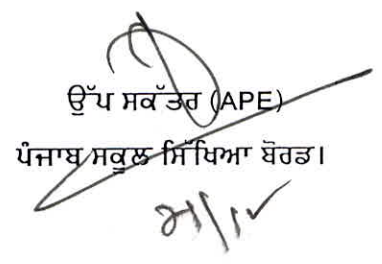 ਉੱਪ ਸਕੱਤਰ (APE)
ਪੰਜਾਬ ਸਕੂਲ ਸਿੱਖਿਆ ਬੋਰਡ।